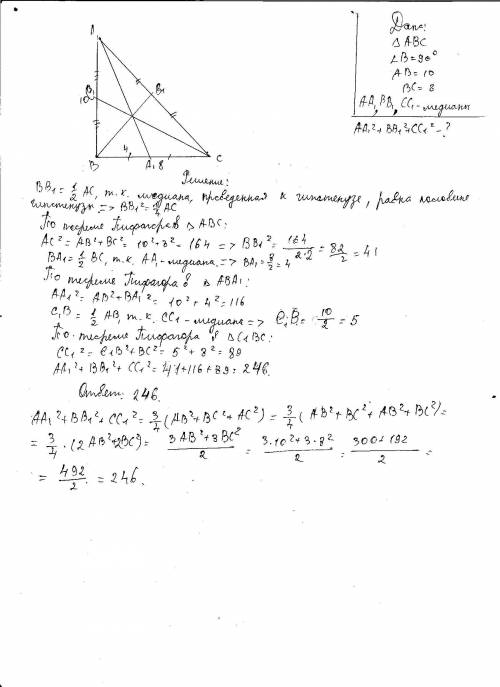 A
B1
10
B1
B
4
A1 8
C
Дано:
△ABC
∠B=90°
AB=10
BC=8
AA1, BB1, CC1-медианы
AA1²+BB1²+CC1²-?
Решение:
BB1=1/2 AC, т.к. медиана, проведенная к гипотенузе, равна половине
гипотенузы => BB1²=1/4 AC
По теореме Пифагора в △ABC:
AC²=AB²+BC²=10²+8²=164 => BB1²=164/2·2=82/2=41
BA1=1/2 BC, т.к. AA1-медиана.=> BA1=8/2=4
По теореме Пифагора в △ABA1:
AA1²=AB²+BA1²=10²+4²=116
C1B=1/2 AB, т.к. CC1-медиана => C1B=10/2=5
По теореме Пифагора в △C1BC:
CC1²=C1B²+BC²=5²+8²=89
AA1²+BB1²+CC1²=41+116+89=246.
Ответ: 246.
AA1²+BB1²+CC1²=3/4(AB²+BC²+AC²)=3/4(AB²+BC²+AB²+BC²)=
=3/4·(2AB²+2BC²)=3AB²+3BC²/2=3·10²+3·8²/2=300+192/2=
=492/2=246.